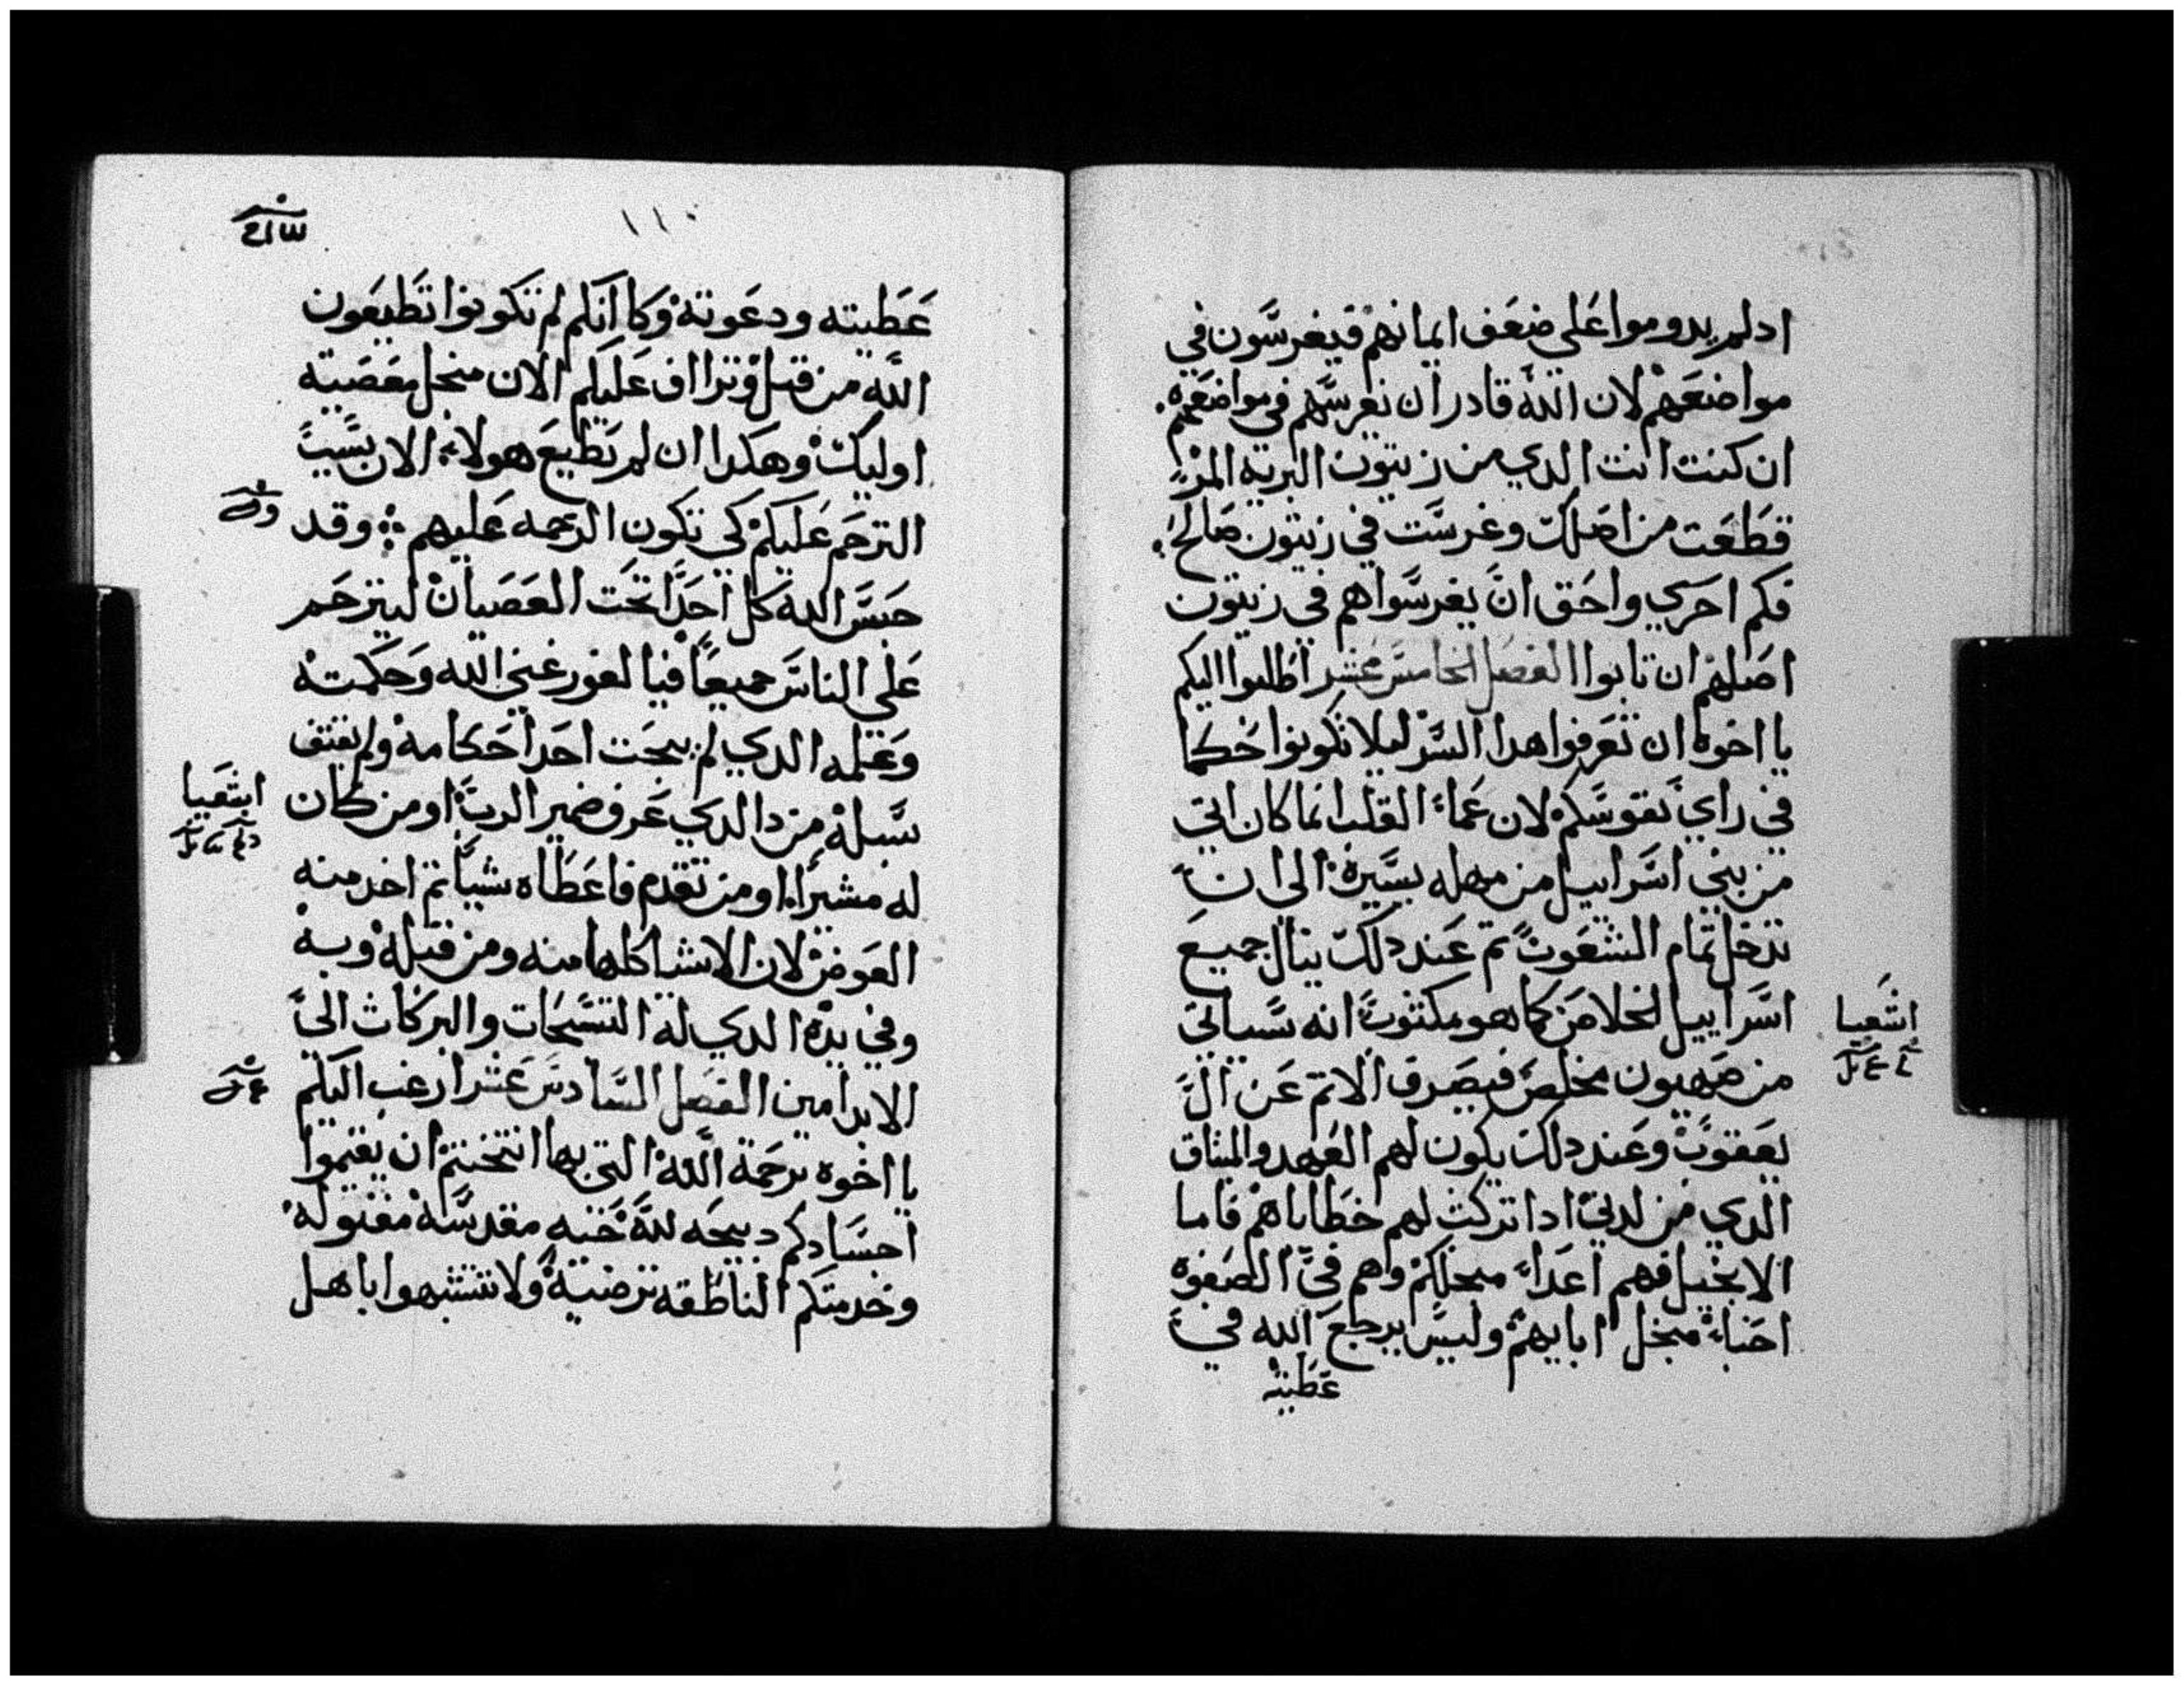 ادلم يدوموا على ضعف ايمانهم فيغرسون في
مواضعهم لان الله قادر ان يغرسهم في مواضعهم
ان كنت انت الدي من زيتون البريه المر
قطعت من اصلك وغرست في زيتون صالح
فكم احري واحق ان يغرسوا هم في زيتون
اصلهم ان تابوا الفصل الخامس عشر اطلبوا اليكم
يا اخوه ان تعرفوا هدا السر ليلا تكونوا حكما
في راي نفوسكم لان عماء القلب انما كان اتي
من بني اسراييل من مهله يسيرة الى ان
تدخل تمام الشعوب تم عند دلك ينال جميع
اسراييل الخلاص كما هو مكتوب انه سياتي
من صهيون مخلص فيصرف الاتم عن ال
يعقوب وعند دلك يكون لهم العهد والميثاق
الدي من لدني ادا تركت لهم خطاياهم فاما
الانجيل فهم اعداء منجلكم واهم في الصفوه
احباء منجل ابايهم وليس يرجع الله في
عطيته
اشعيا
١١٠
عطيته ودعوته وكما انكم لم تكونوا تطيعون
الله من قبل وتراف عليكم الان منجل معصية
اوليك وهكدا ان لم تطيع هولاء الان بسبب
الترحم عليكم كي تكون الرحمه عليهم وقد
حبس الله كل احدا تحت العصيان ليترحم
على الناس جميعا فيا لغور غني الله وحكمته
وعلمه الدي لم يبحت احد احكامه ولم يقتف
سبله من دا الدي عرف ضمير الرب او من كان
له مشيرا او من تقدم فاعطاه شيا تم اخد منه
العوض لان الاشيا كلها منه ومن قبله وبه
وفي يده الدي له التسبحات والبركات الى
الابد امين الفصل السادس عشر ارغب اليكم
يا اخوه برحمة الله التي بها انتخبتم ان يقيموا
اجسادكم دبيحه لله حيه مقدسه مقبوله
وخدمتكم الناطقه ترضيه ولا تتشبهوا باهل
اشعيا